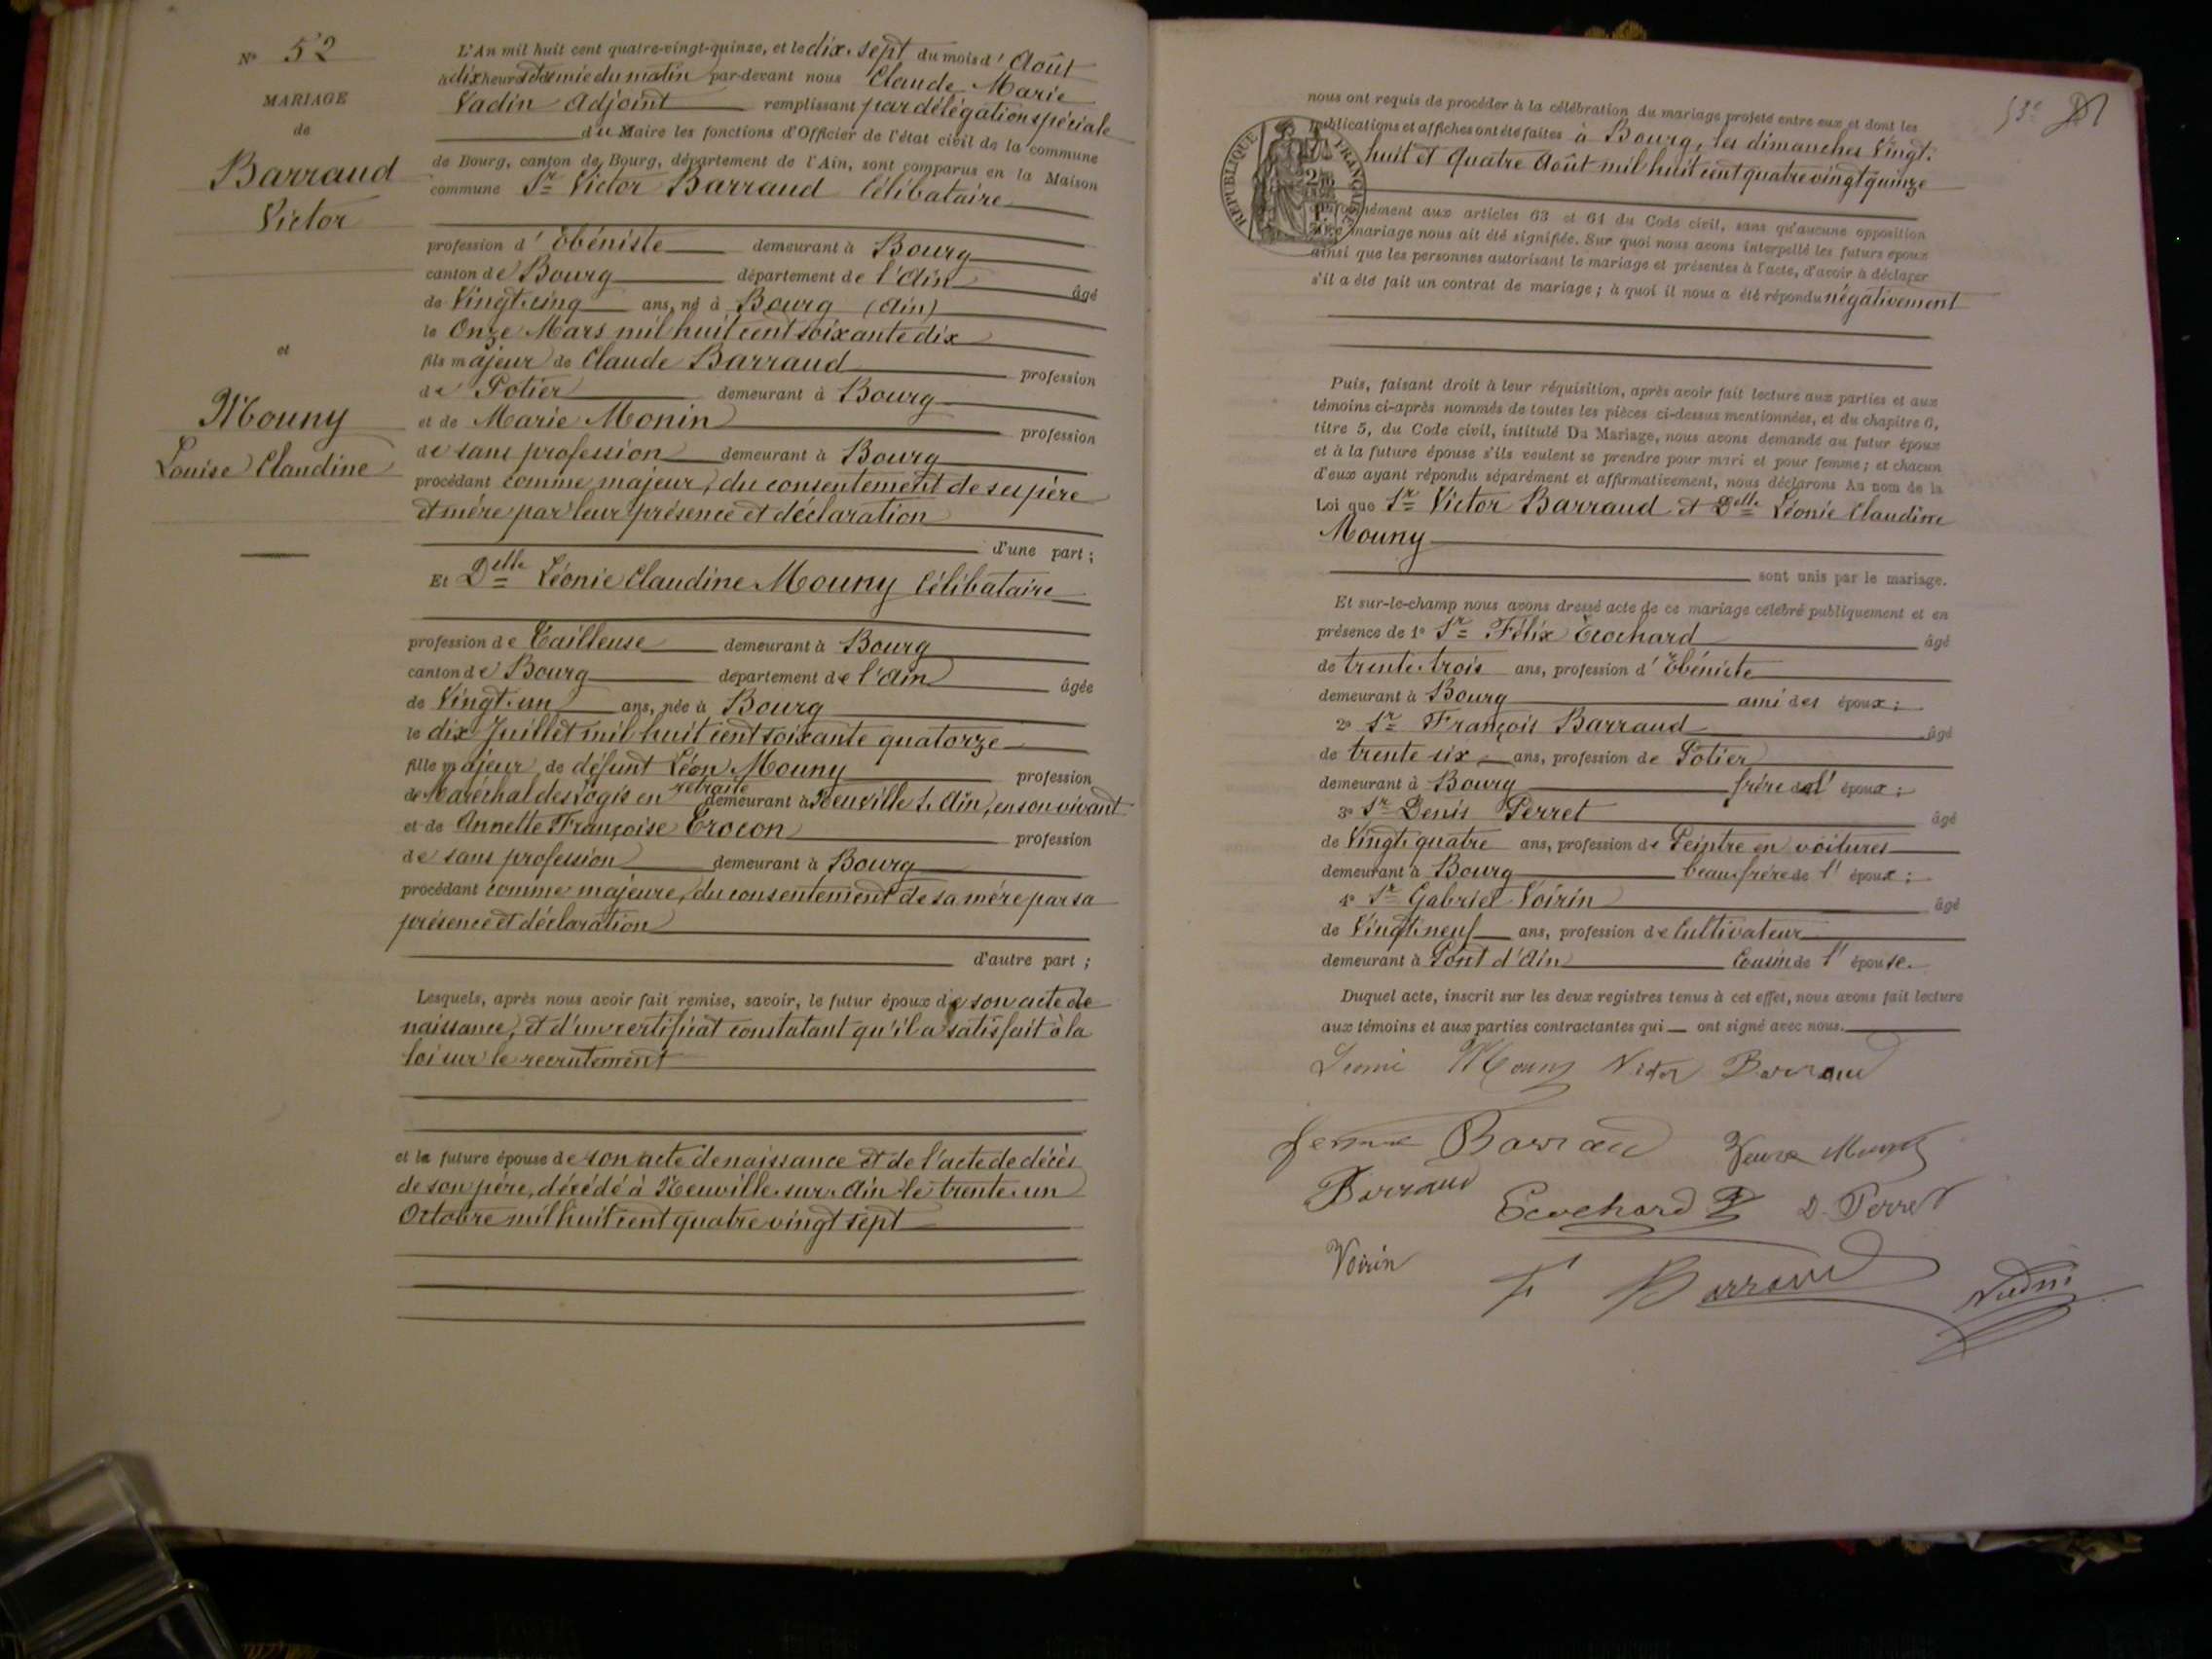 N° 52
MARIAGE
de
Barraud
Victor
et
Mouny
Louise Claudine
L'An mil huit cent quatre-vingt-quinze, et le dix-sept du mois d'Août
à dix heures et demie du matin par-devant nous Claude Marie
Vadin Adjoint remplissant par délégation spéciale
du Maire les fonctions d'Officier de l'état civil de la commune
de Bourg, canton de Bourg, département de l'Ain, sont comparus en la Maison
commune Sr Victor Barraud Célibataire
profession d'Ebéniste demeurant à Bourg
canton de Bourg département de l'Ain âgé
de Vingt-cinq ans, né à Bourg (Ain)
le Onze Mars mil huit cent soixante dix
fils majeur de Claude Barraud profession
de Potier demeurant à Bourg
et de Marie Monin profession
de sans profession demeurant à Bourg
procédant comme majeur, du consentement de ses père
et mère par leur présence et déclaration
d'une part;
Et Delle Léonie Claudine Mouny Célibataire
profession de Tailleuse demeurant à Bourg
canton de Bourg département de l'Ain âgée
de Vingt-un ans, née à Bourg
le dix Juillet mil huit cent soixante quatorze
fille majeur de défunt Léon Mouny profession
de Maréchal des logis en retraite demeurant à Neuville s. Ain, en son vivant
et de Annette Françoise Erocon profession
de sans profession demeurant à Bourg
procédant comme majeure, du consentement de sa mère par sa
présence et déclaration
d'autre part;
Lesquels, après nous avoir fait remise, savoir, le futur époux de son acte de
naissance, et d'un certificat constatant qu'il a satisfait à la
loi sur le recrutement
et la future épouse de son acte de naissance et de l'acte de décès
de son père, décédé à Neuville-sur-Ain le trente-un
Octobre mil huit cent quatre vingt sept
53e
nous ont requis de procéder à la célébration du mariage projeté entre eux et dont les
publications et affiches ont été faites à Bourg, les dimanches Vingt-
huit et Quatre Août mil huit cent quatre vingt quinze
RÉPUBLIQUE FRANÇAISE
conformément aux articles 63 et 64 du Code civil, sans qu'aucune opposition
au mariage nous ait été signifiée. Sur quoi nous avons interpellé les futurs époux
ainsi que les personnes autorisant le mariage et présentes à l'acte, d'avoir à déclarer
s'il a été fait un contrat de mariage; à quoi il nous a été répondu négativement
Puis, faisant droit à leur réquisition, après avoir fait lecture aux parties et aux
témoins ci-après nommés de toutes les pièces ci-dessus mentionnées, et du chapitre 6,
titre 5, du Code civil, intitulé Du Mariage, nous avons demandé au futur époux
et à la future épouse s'ils veulent se prendre pour mari et pour femme; et chacun
d'eux ayant répondu séparément et affirmativement, nous déclarons Au nom de la
Loi que Sr Victor Barraud et Delle Léonie Claudine
Mouny
sont unis par le mariage.
Et sur-le-champ nous avons dressé acte de ce mariage célébré publiquement et en
présence de 1° Sr Félix Ecochard âgé
de trente-trois ans, profession d'Ebéniste
demeurant à Bourg ami des époux;
2° Sr François Barraud âgé
de trente six ans, profession de Potier
demeurant à Bourg frère de l'époux;
3° Sr Denis Perret âgé
de Vingt-quatre ans, profession de Peintre en voitures
demeurant à Bourg beau-frère de l'époux;
4° Sr Gabriel Voirin âgé
de Vingt-neuf ans, profession de Cultivateur
demeurant à Pont d'Ain Cousin de l'épouse.
Duquel acte, inscrit sur les deux registres tenus à cet effet, nous avons fait lecture
aux témoins et aux parties contractantes qui ont signé avec nous.
Léonie Mouny Victor Barraud
femme Barraud Veuve Mouny
Barraud Ecochard D. Perret
Voirin F Barraud Vadin